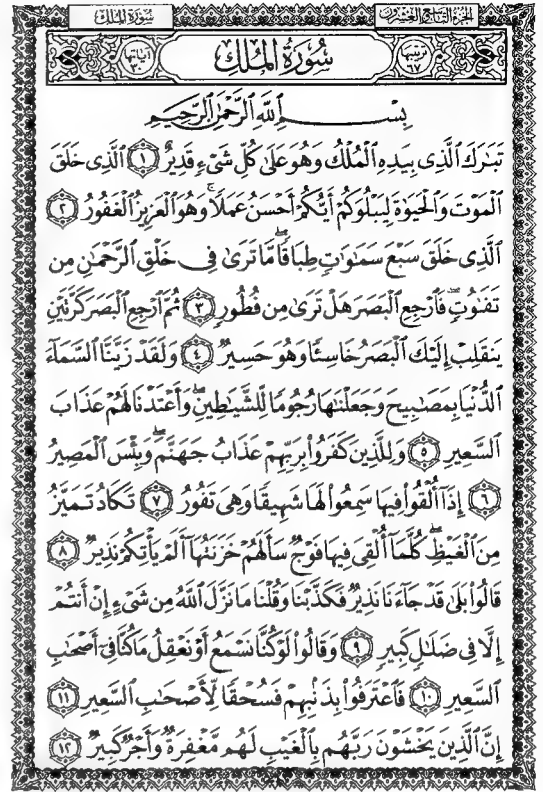 الجزء التاسع والعشرون
سورة الملك
ترتيبها ٦٧
سُورَةُ الْمُلْكِ
آياتها ٣٠
بِسْمِ ٱللَّهِ ٱلرَّحْمَٰنِ ٱلرَّحِيمِ
تَبَٰرَكَ ٱلَّذِى بِيَدِهِ ٱلْمُلْكُ وَهُوَ عَلَىٰ كُلِّ شَىْءٍ قَدِيرٌ ﴿١﴾ ٱلَّذِى خَلَقَ
ٱلْمَوْتَ وَٱلْحَيَوٰةَ لِيَبْلُوَكُمْ أَيُّكُمْ أَحْسَنُ عَمَلًا ۚ وَهُوَ ٱلْعَزِيزُ ٱلْغَفُورُ ﴿٢﴾
ٱلَّذِى خَلَقَ سَبْعَ سَمَٰوَٰتٍ طِبَاقًا ۖ مَّا تَرَىٰ فِى خَلْقِ ٱلرَّحْمَٰنِ مِن
تَفَٰوُتٍ ۖ فَٱرْجِعِ ٱلْبَصَرَ هَلْ تَرَىٰ مِن فُطُورٍ ﴿٣﴾ ثُمَّ ٱرْجِعِ ٱلْبَصَرَ كَرَّتَيْنِ
يَنقَلِبْ إِلَيْكَ ٱلْبَصَرُ خَاسِئًا وَهُوَ حَسِيرٌ ﴿٤﴾ وَلَقَدْ زَيَّنَّا ٱلسَّمَآءَ
ٱلدُّنْيَا بِمَصَٰبِيحَ وَجَعَلْنَٰهَا رُجُومًا لِّلشَّيَٰطِينِ ۖ وَأَعْتَدْنَا لَهُمْ عَذَابَ
ٱلسَّعِيرِ ﴿٥﴾ وَلِلَّذِينَ كَفَرُوا۟ بِرَبِّهِمْ عَذَابُ جَهَنَّمَ ۖ وَبِئْسَ ٱلْمَصِيرُ
﴿٦﴾ إِذَآ أُلْقُوا۟ فِيهَا سَمِعُوا۟ لَهَا شَهِيقًا وَهِىَ تَفُورُ ﴿٧﴾ تَكَادُ تَمَيَّزُ
مِنَ ٱلْغَيْظِ ۖ كُلَّمَآ أُلْقِىَ فِيهَا فَوْجٌ سَأَلَهُمْ خَزَنَتُهَآ أَلَمْ يَأْتِكُمْ نَذِيرٌ ﴿٨﴾
قَالُوا۟ بَلَىٰ قَدْ جَآءَنَا نَذِيرٌ فَكَذَّبْنَا وَقُلْنَا مَا نَزَّلَ ٱللَّهُ مِن شَىْءٍ إِنْ أَنتُمْ
إِلَّا فِى ضَلَٰلٍ كَبِيرٍ ﴿٩﴾ وَقَالُوا۟ لَوْ كُنَّا نَسْمَعُ أَوْ نَعْقِلُ مَا كُنَّا فِىٓ أَصْحَٰبِ
ٱلسَّعِيرِ ﴿١٠﴾ فَٱعْتَرَفُوا۟ بِذَنۢبِهِمْ فَسُحْقًا لِّأَصْحَٰبِ ٱلسَّعِيرِ ﴿١١﴾
إِنَّ ٱلَّذِينَ يَخْشَوْنَ رَبَّهُم بِٱلْغَيْبِ لَهُم مَّغْفِرَةٌ وَأَجْرٌ كَبِيرٌ ﴿١٢﴾